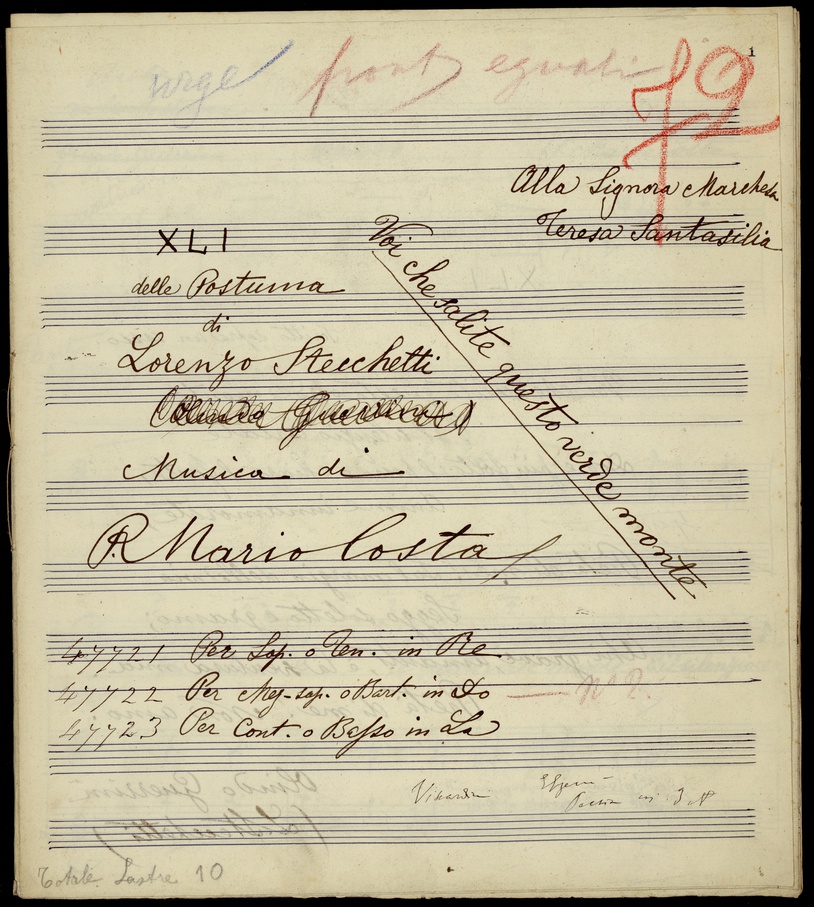 urge fronti eguali 79
1
Alla Signora Marchesa
Teresa Santasilia
XLI
delle Postuma
di
Lorenzo Stecchetti
Musica di
P. Mario Costa
Voi che salite questo verde monte
47721 Per Sop. o Ten. in Re
47722 Per Mez-sop. o Bart. in Do
47723 Per Cont. o Basso in La
Totale Lastre 10